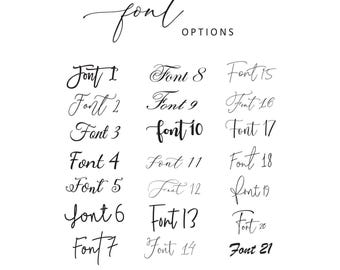 font
OPTIONS
Font 1
Font 2
Font 3
Font 4
Font 5
font 6
Font 7
Font 8
Font 9
font 10
Font 11
Font 12
Font 13
Font 14
Font 15
Font 16
Font 17
Font 18
Font 19
Font 20
Font 21